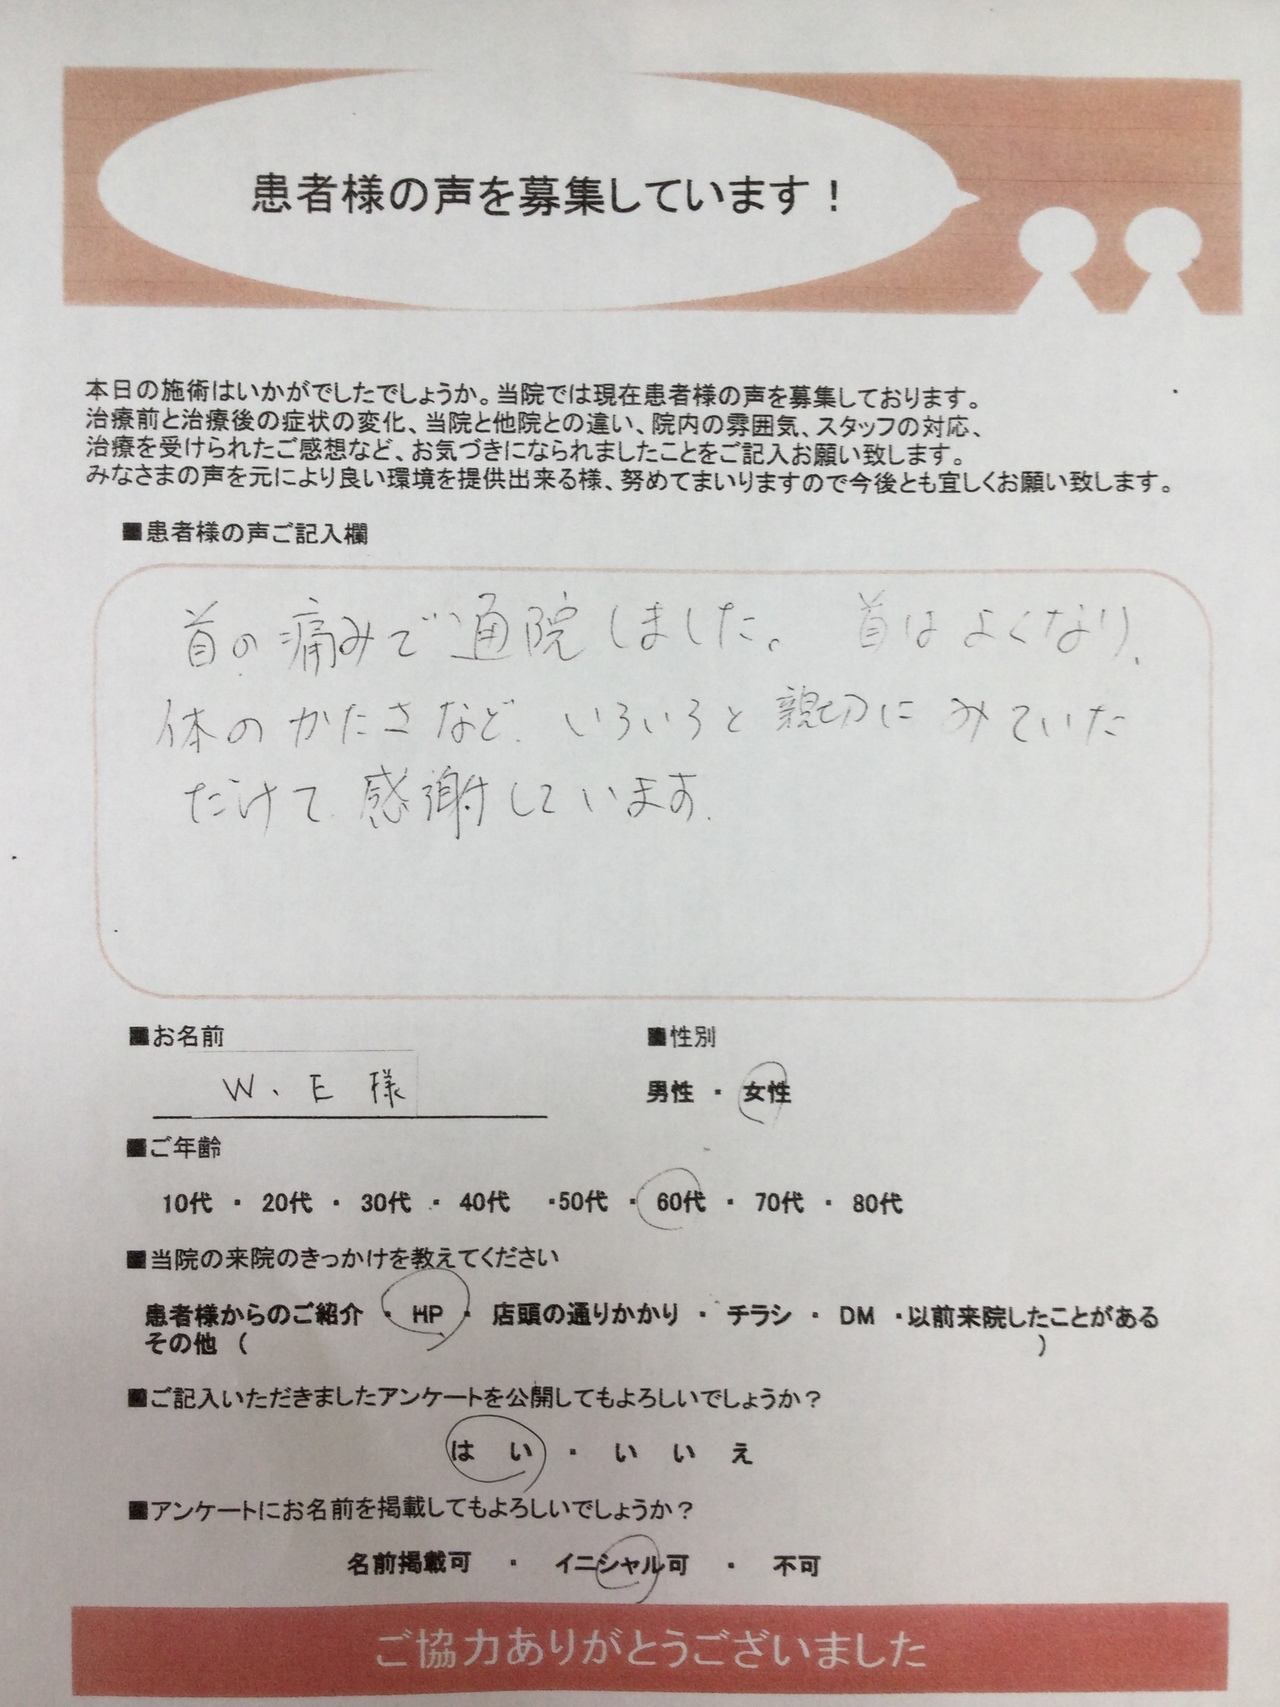 患者様の声を募集しています！
本日の施術はいかがでしたでしょうか。当院では現在患者様の声を募集しております。
治療前と治療後の症状の変化、当院と他院との違い、院内の雰囲気、スタッフの対応、
治療を受けられたご感想など、お気づきになられましたことをご記入お願い致します。
みなさまの声を元により良い環境を提供出来る様、努めてまいりますので今後とも宜しくお願い致します。
■患者様の声ご記入欄
首の痛みで通院しました。首はよくなり、
体のかたさなど、いろいろと親切にみていた
だけて、感謝しています。
■お名前 ■性別
W、E 様 男性 ・ 女性
■ご年齢
10代 ・ 20代 ・ 30代 ・ 40代 ・50代 ・ 60代 ・ 70代 ・ 80代
■当院の来院のきっかけを教えてください
患者様からのご紹介 ・ HP ・ 店頭の通りかかり ・ チラシ ・ DM ・以前来院したことがある
その他 （ ）
■ご記入いただきましたアンケートを公開してもよろしいでしょうか？
は い ・ い い え
■アンケートにお名前を掲載してもよろしいでしょうか？
名前掲載可 ・ イニシャル可 ・ 不可
ご協力ありがとうございました